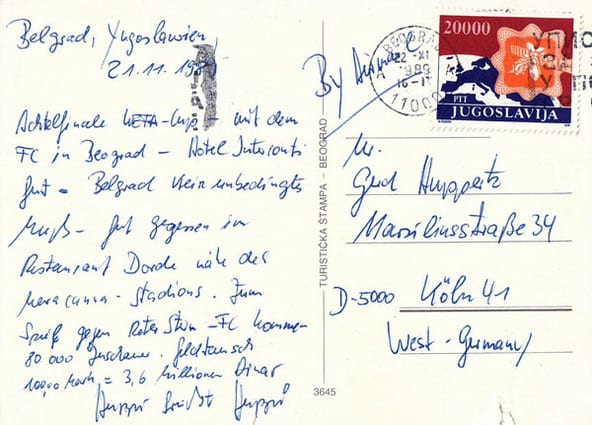 Belgrad, Yugoslawien,
21.11.198
Achtelfinale UEFA-Cup mit dem
FC in Beograd – Hotel Interconti
gut – Belgrad kein unbedingtes
Muß – gut gegessen im
Restaurant Dorde nähe des
Maracanna-Stadions. Zum
Spiel gegen Roter Stern – FC kommen
80 000 Zuschauer. Geldtausch
100,00 Mark = 3,6 Millionen Dinar
Huppi grüßt Huppi
TURISTIČKA ŠTAMPA – BEOGRAD
3645
By Airmail
BEOGRAD
22-XI
989
16-17
A
11000
20000
PTT
JUGOSLAVIJA
Hr.
Gerd Huppertz
Marsiliusstraße 34
D-5000 Köln 41
West-Germany